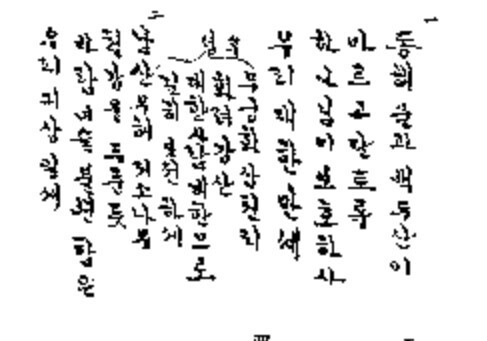 一
동해물과 백두산이
마르고 달토록
하나님이 보호하사
우리 대한 만세
후렴
무궁화 삼천리
화려강산
대한사람 대한으로
길이 보전하세
二
남산우헤 저 소나무
철갑을 두른듯
바람이슬 불변함은
우리 기상일세